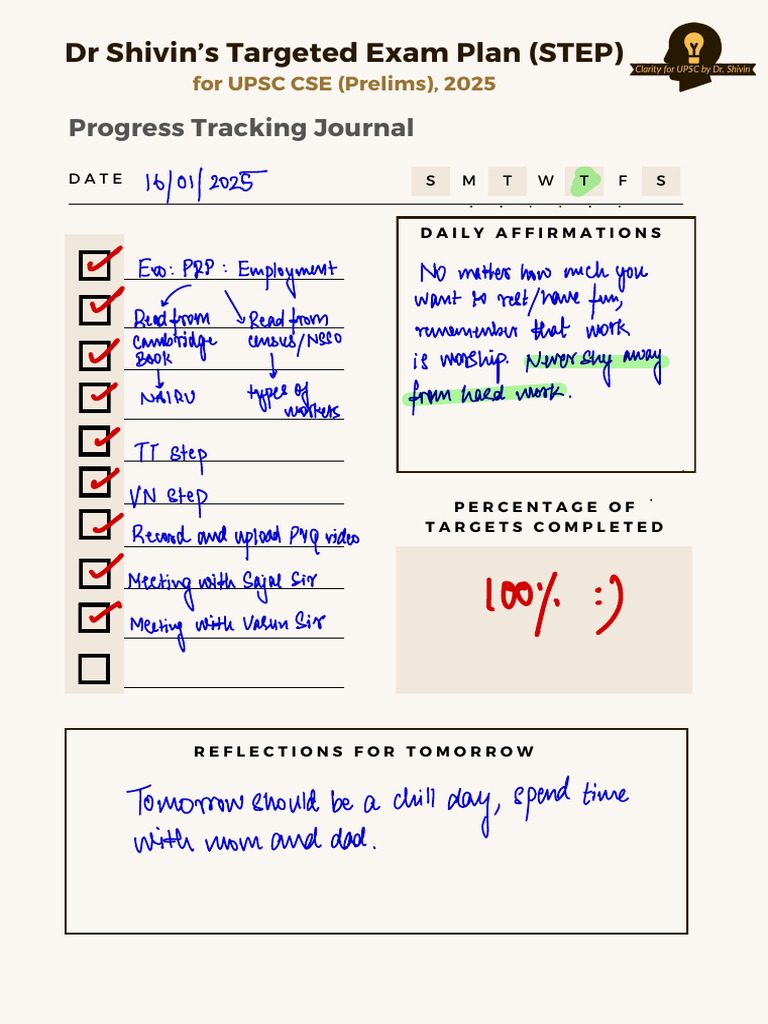 Dr Shivin's Targeted Exam Plan (STEP)
for UPSC CSE (Prelims), 2025
Clarity for UPSC by Dr. Shivin
Progress Tracking Journal
DATE 16/01/2025
S M T W T F S
Eco: PRP: Employment
Read from
Cambridge
Book
NAIRU
Read from
census/NSSO
types of
workers
TT Step
VN Step
Record and upload PYQ video
Meeting with Sajal Sir
Meeting with Varun Sir
DAILY AFFIRMATIONS
No matter how much you
want to rest/have fun,
remember that work
is worship. Never shy away
from hard work.
PERCENTAGE OF
TARGETS COMPLETED
100% :)
REFLECTIONS FOR TOMORROW
Tomorrow should be a chill day, spend time
with mom and dad.